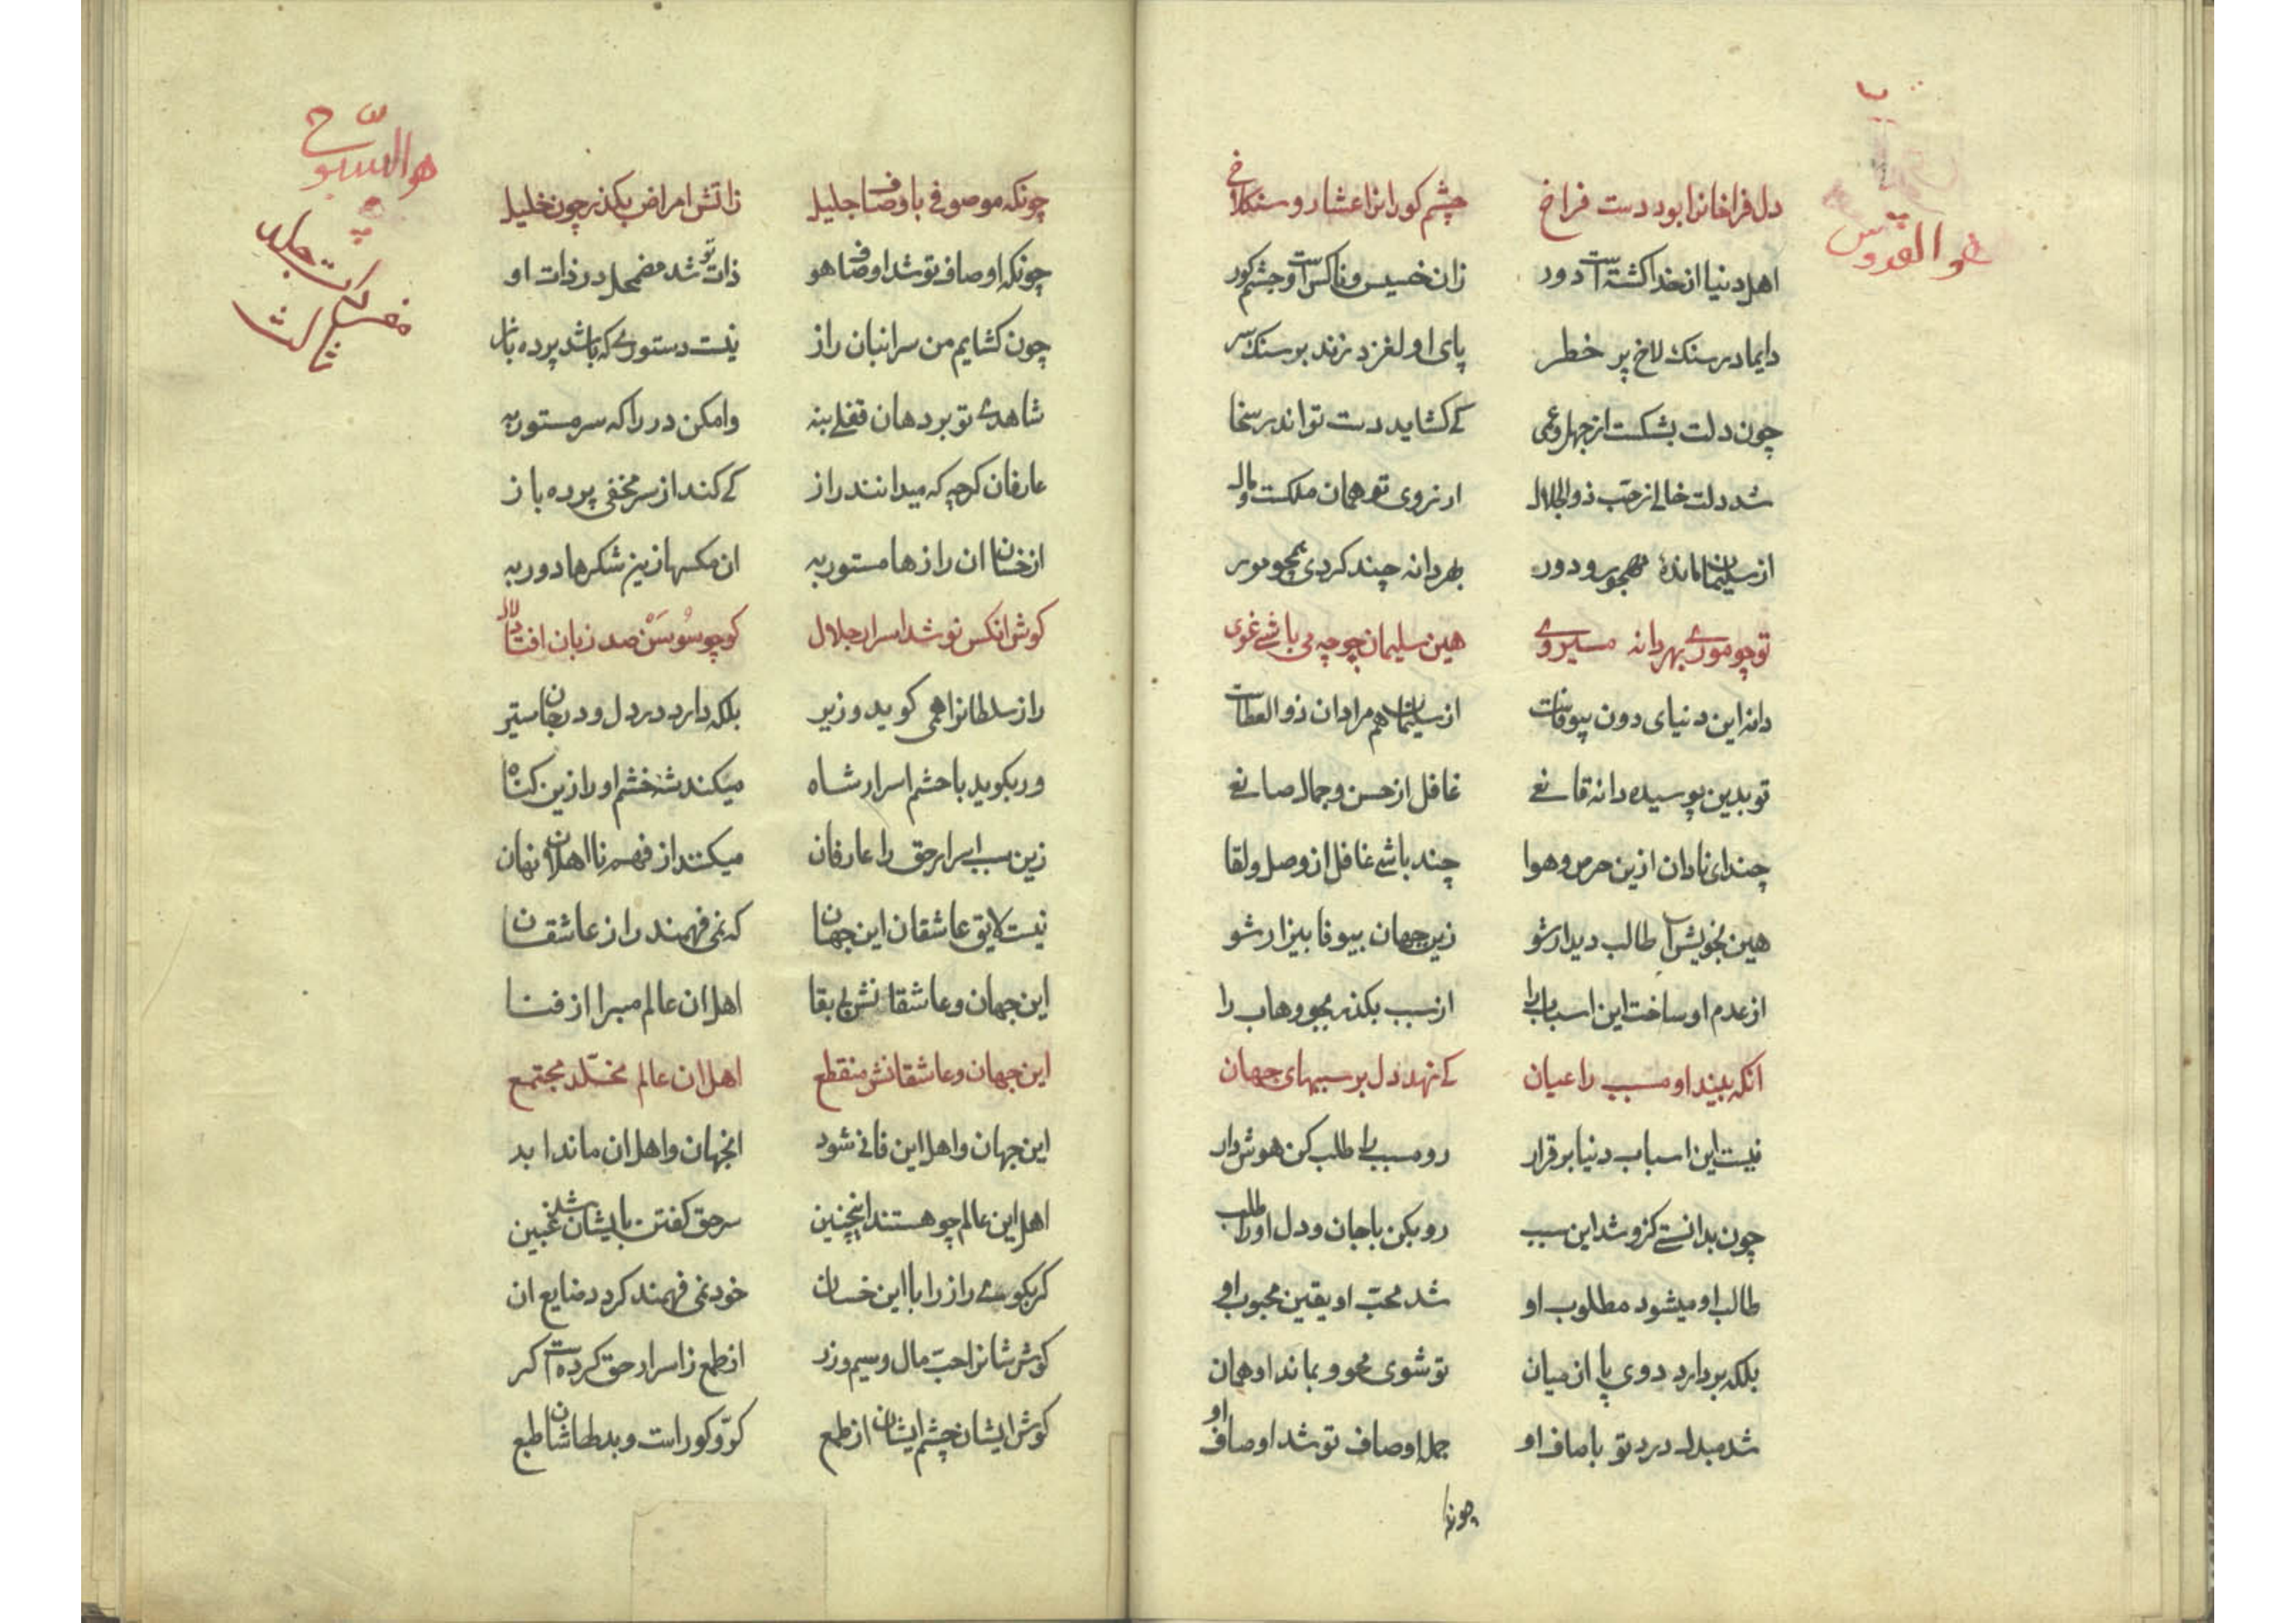 هو القدوس
دل فراخانرا بود دست فراخ چشم کورانرا عشار و سنکلاخ
اهل دنیا از خدا کشته است دور زان خسیس و ناکس است و چشم کور
دایما در سنک لاخ پر خطر پای او لغزد زند بر سنک سر
چون دلت بشکست از جهل و عمی کے کشاید دست تو اندر سخا
شد دلت خالے از حب ذوالجلال ار نروی تو همان ملکست و مال
از سلیمان ماندهٔ مهجور و دور بهر دانه چند کردی همچو مور
تو چو مورے بهر دانه میروے هین سلیمان چو چه می باشے غوی
دانه این دنیای دون بیوفاست از سلیمان هم مراد ان ذو العطاست
تو بدین پوسیده دانه قانعے غافل از حسن و جمال صانعے
چند ای نادان ازین حرص و هوا چند باشے غافل از وصل و لقا
هین بخویش آ طالب دیدار شو زین جهان بیوفا بیزار شو
از عدم او ساخت این اسباب را از سبب بکذر بجو وهاب را
انکه بیند او مسبب را عیان کے نهد دل بر سببهای جهان
نیست این اسباب دنیا برقرار رو مسبب را طلب کن هوش دار
چون بدانستے کزو شد این سبب رو بکن با جان و دل او را طلب
طالب او میشود مطلوب او شد محبّ او یقین محبوب او
بلکه بردارد دوی پا از میان تو شوی محو و بماند او همان
شد مبدل درد تو با صاف او جمله اوصاف تو شد اوصاف او
چونکه
هو السبّوح
ثالث
چونکه موصوفی باوصاف جلیل زاتش امراض بکذر چون خلیل
چونکه اوصاف تو شد اوصاف هو ذات تو شد مضمحل در ذات او
چون کشایم من سر انبان راز نیست دستورے که باشد پرده باز
شاهدے تو بر دهان قفلے بنه وا مکن در را که سر مستور به
عارفان کرچه که میدانند راز کے کند از سر مخفی پرده باز
از خسان ان رازها مستور به ان مکسها زین شکرها دور به
کوش انکس نوشد اسرار جلال کو چو سُوسَنْ صد زبان افتاد لال
راز سلطانرا همی کوید وزیر بلکه دارد در دل و در جان ستیر
ور بکوید با حشم اسرار شاه میکند شه خشم او را زین کناه
زین سبب اسرار حق را عارفان میکنند از فهم نا اهلان نهان
نیست لایق عاشقان این جهان که نمی فهمند راز عاشقان
این جهان و عاشقانش بے بقا اهل ان عالم مبرا از فنا
این جهان و عاشقانش منقطع اهل ان عالم مخلّد مجتمع
این جهان و اهل این فانی شود انجهان و اهل ان ماند ابد
اهل این عالم چو هستند اینچنین سر حق کفتن بایشان شد غبین
کر بکویے راز را با این خسان خود نمی فهمند کردد ضایع ان
کوش شانرا حبّ مال و سیم و زر از طمع زاسرار حق کرده است کر
کوش ایشان چشم ایشان از طمع کرّ و کور است و بد طماشان طبع